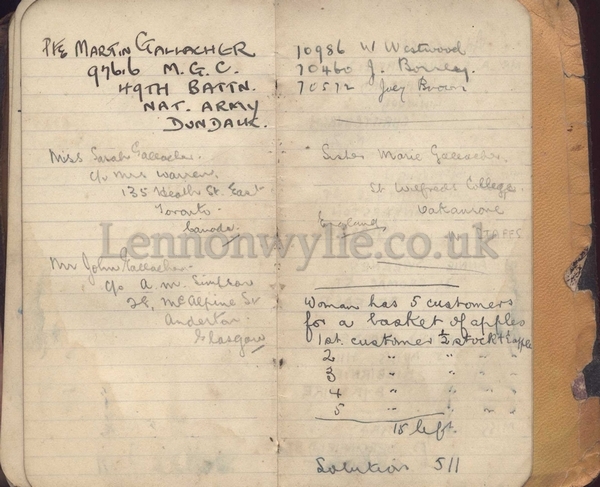 Pte MARTIN GALLACHER
97616 M.G.C.
49TH BATTN.
NAT. ARMY
DUNDALK.
Miss Sarah Gallacher.
c/o Mrs Warren.
135 Heath St East
Toronto.
Canada.
Mr John Gallacher.
c/o A. M. Simpson
28, McAlpine St
Anderton.
Glasgow
10986 W Westwood
70460 J.
70572 Joey Brown
Sister Marie Gallacher.
St Wilfreds College.
Oakamoore
England. STAFFS
Lennonwylie.co.uk
Woman has 5 customers
for a basket of apples
1st. customer ½ stock + ½ apple
2 " " "
3 " " "
4 " " "
5 " " "
15 left.
Solution 511